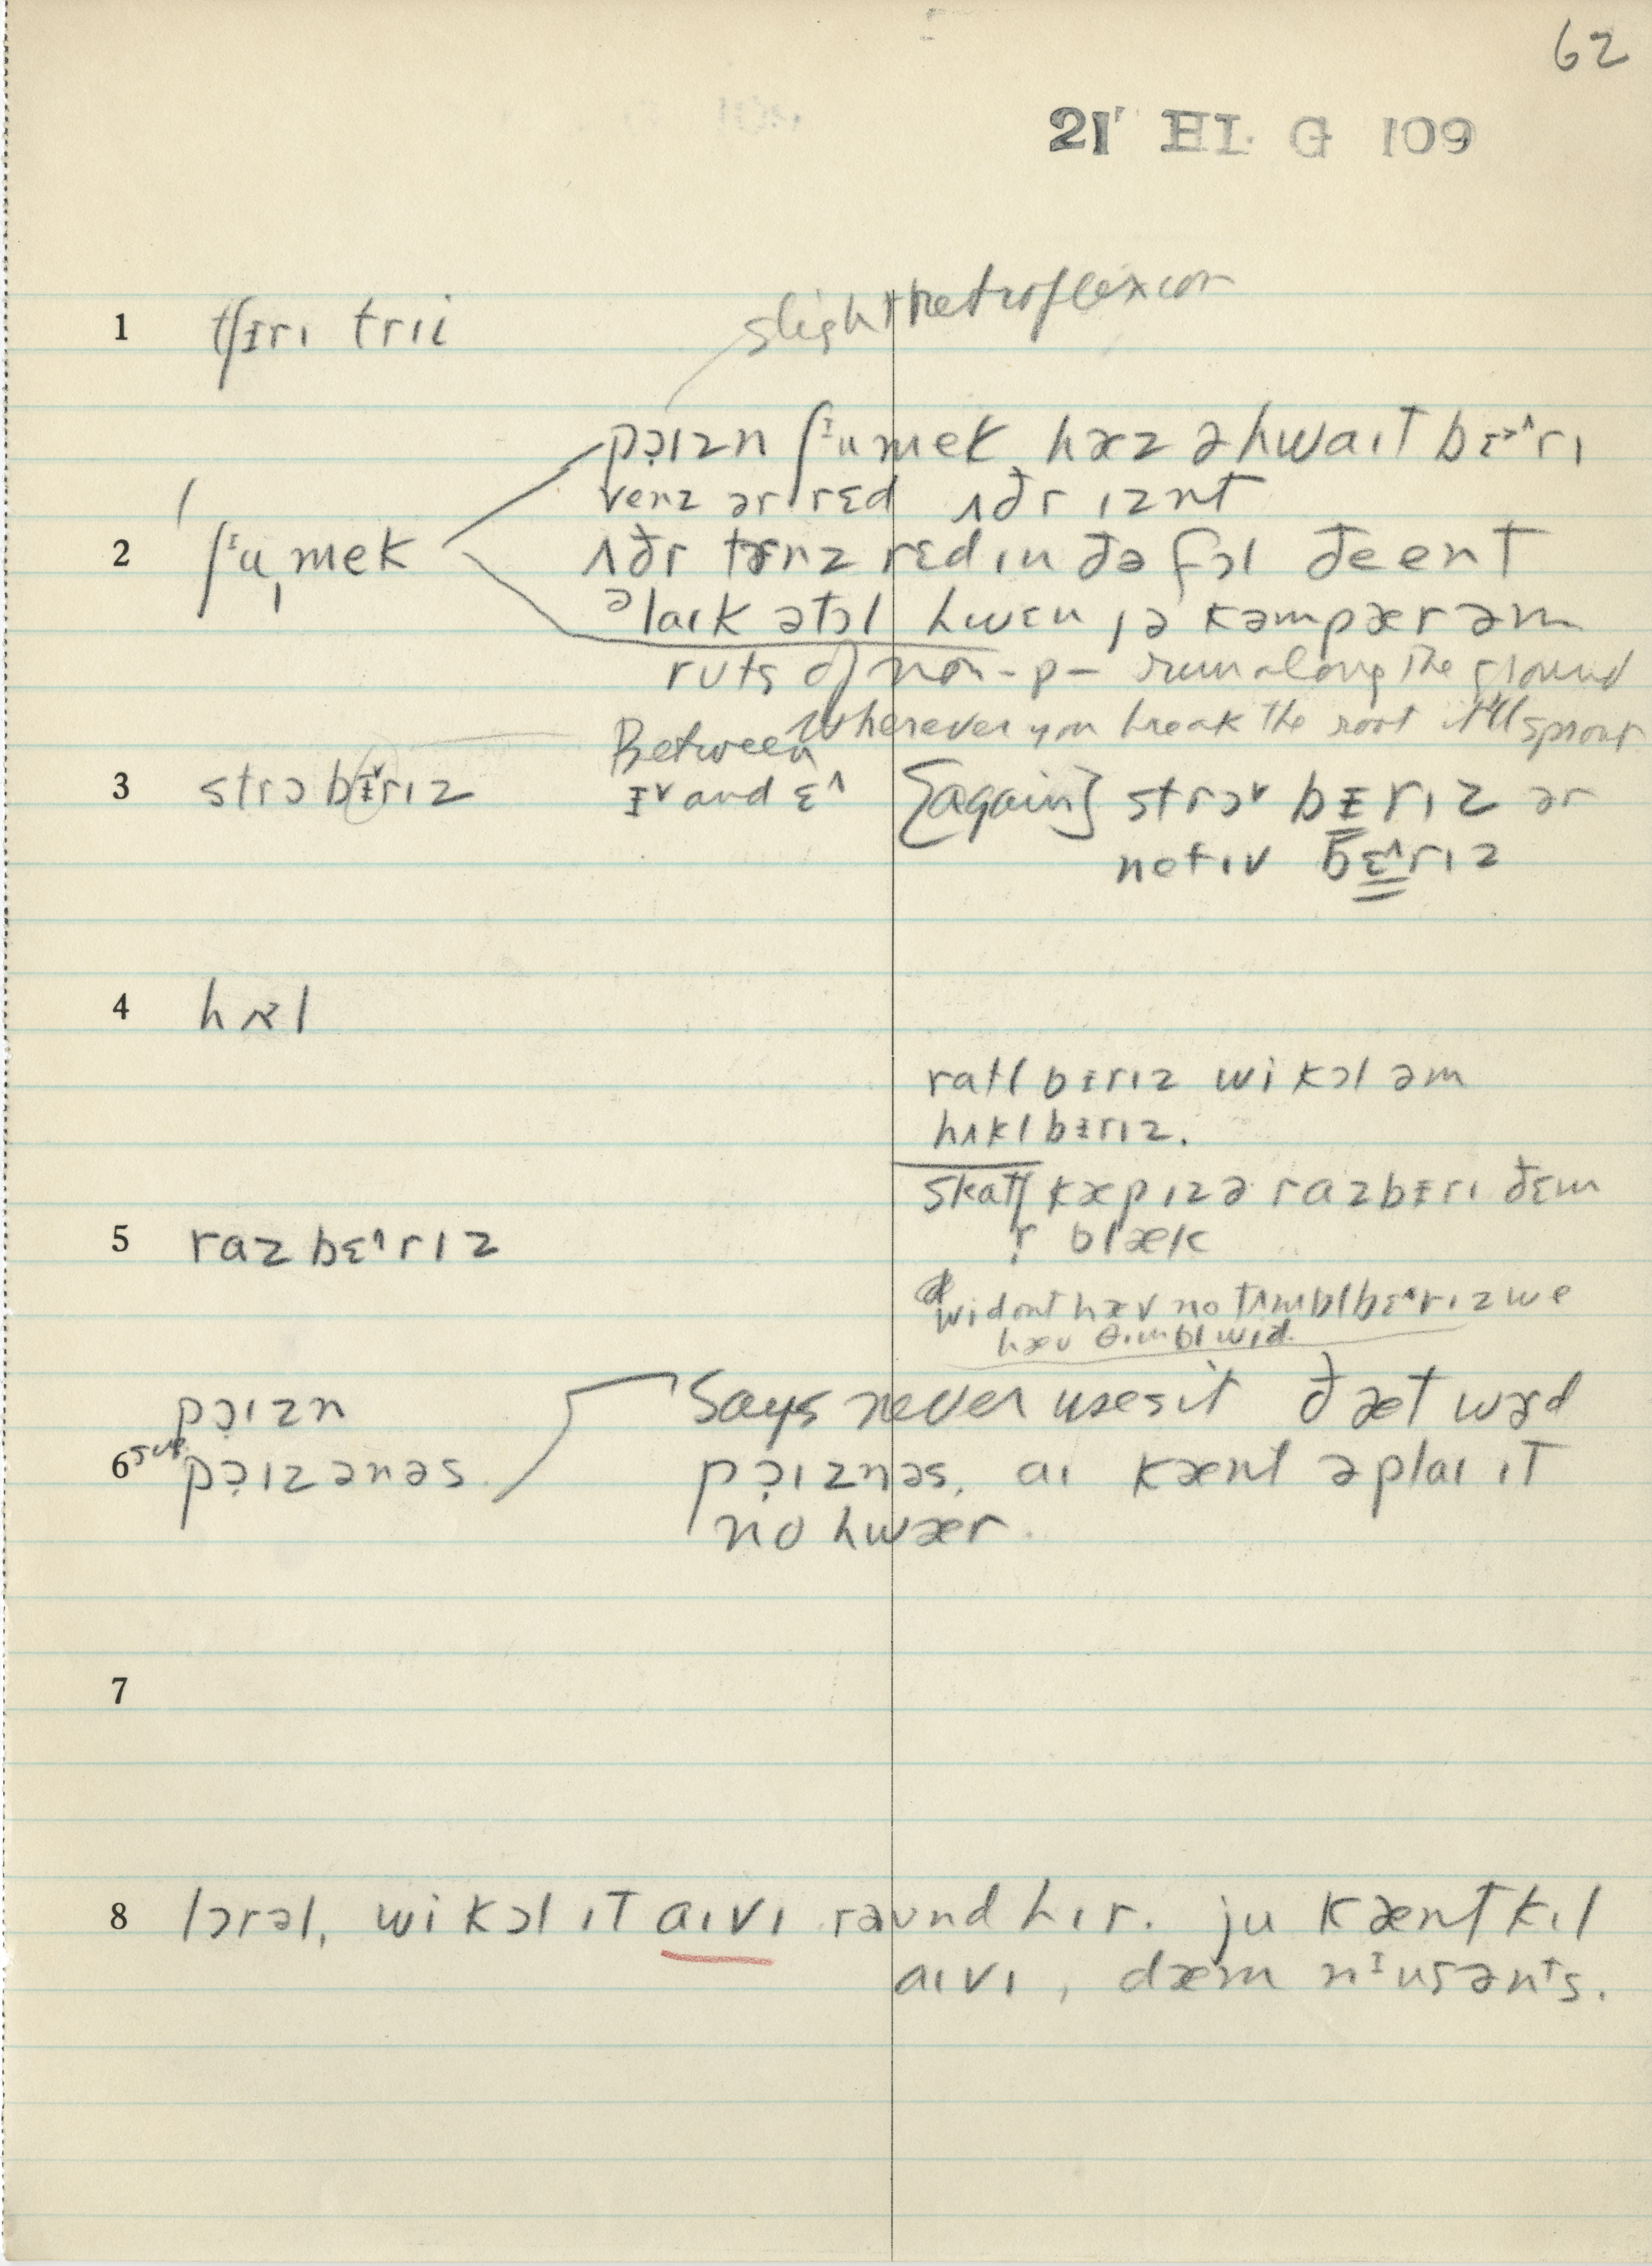 62
21' HI. G 109
1 tʃᵻrɪ trii
slight retroflexion
pə̣ɪzn ʃᶦumek hæz ə hwaɪt bɛ>^rɪ
venz ər rɛd ʌðr ɪznt
2 ʃᶦu,mek ʌðr tɚnz rɛd ɪn ðə fɔl ðe ent
əlaɪk ətɔl hwɛn jə kəmpær əm
ruts of non-p- run along the ground
Wherever you break the root it'll sprout
Between
3 strɔbᵻ˅rɪz ᵻ˅ and ɛ^ [again] strɔ˅ bᵻrɪz ər
netɪv bɛ^rɪz
4 hʌl
ratl bᵻrɪz wi kɔl əm
hʌkl bᵻrɪz.
skatʃ kæp ɪz ə razbᵻrɪ ðɛm
5 razbɛ^rɪz r blæk
wi dont hæv no tɪmblbɛ^rɪz we
hæv θɪmblwid.
pə̣ɪzn Says never uses it ðæt wɚd
6 sug. pə̣ɪzənəs pə̣ɪznəs, aɪ kænt əplaɪ ɪt
no hwær.
7
8 lɔrəl, wi kɔl ɪt aɪvɪ raʊnd hɪr. ju kænt kɪl
aɪvɪ, dæm nᶦusənts.